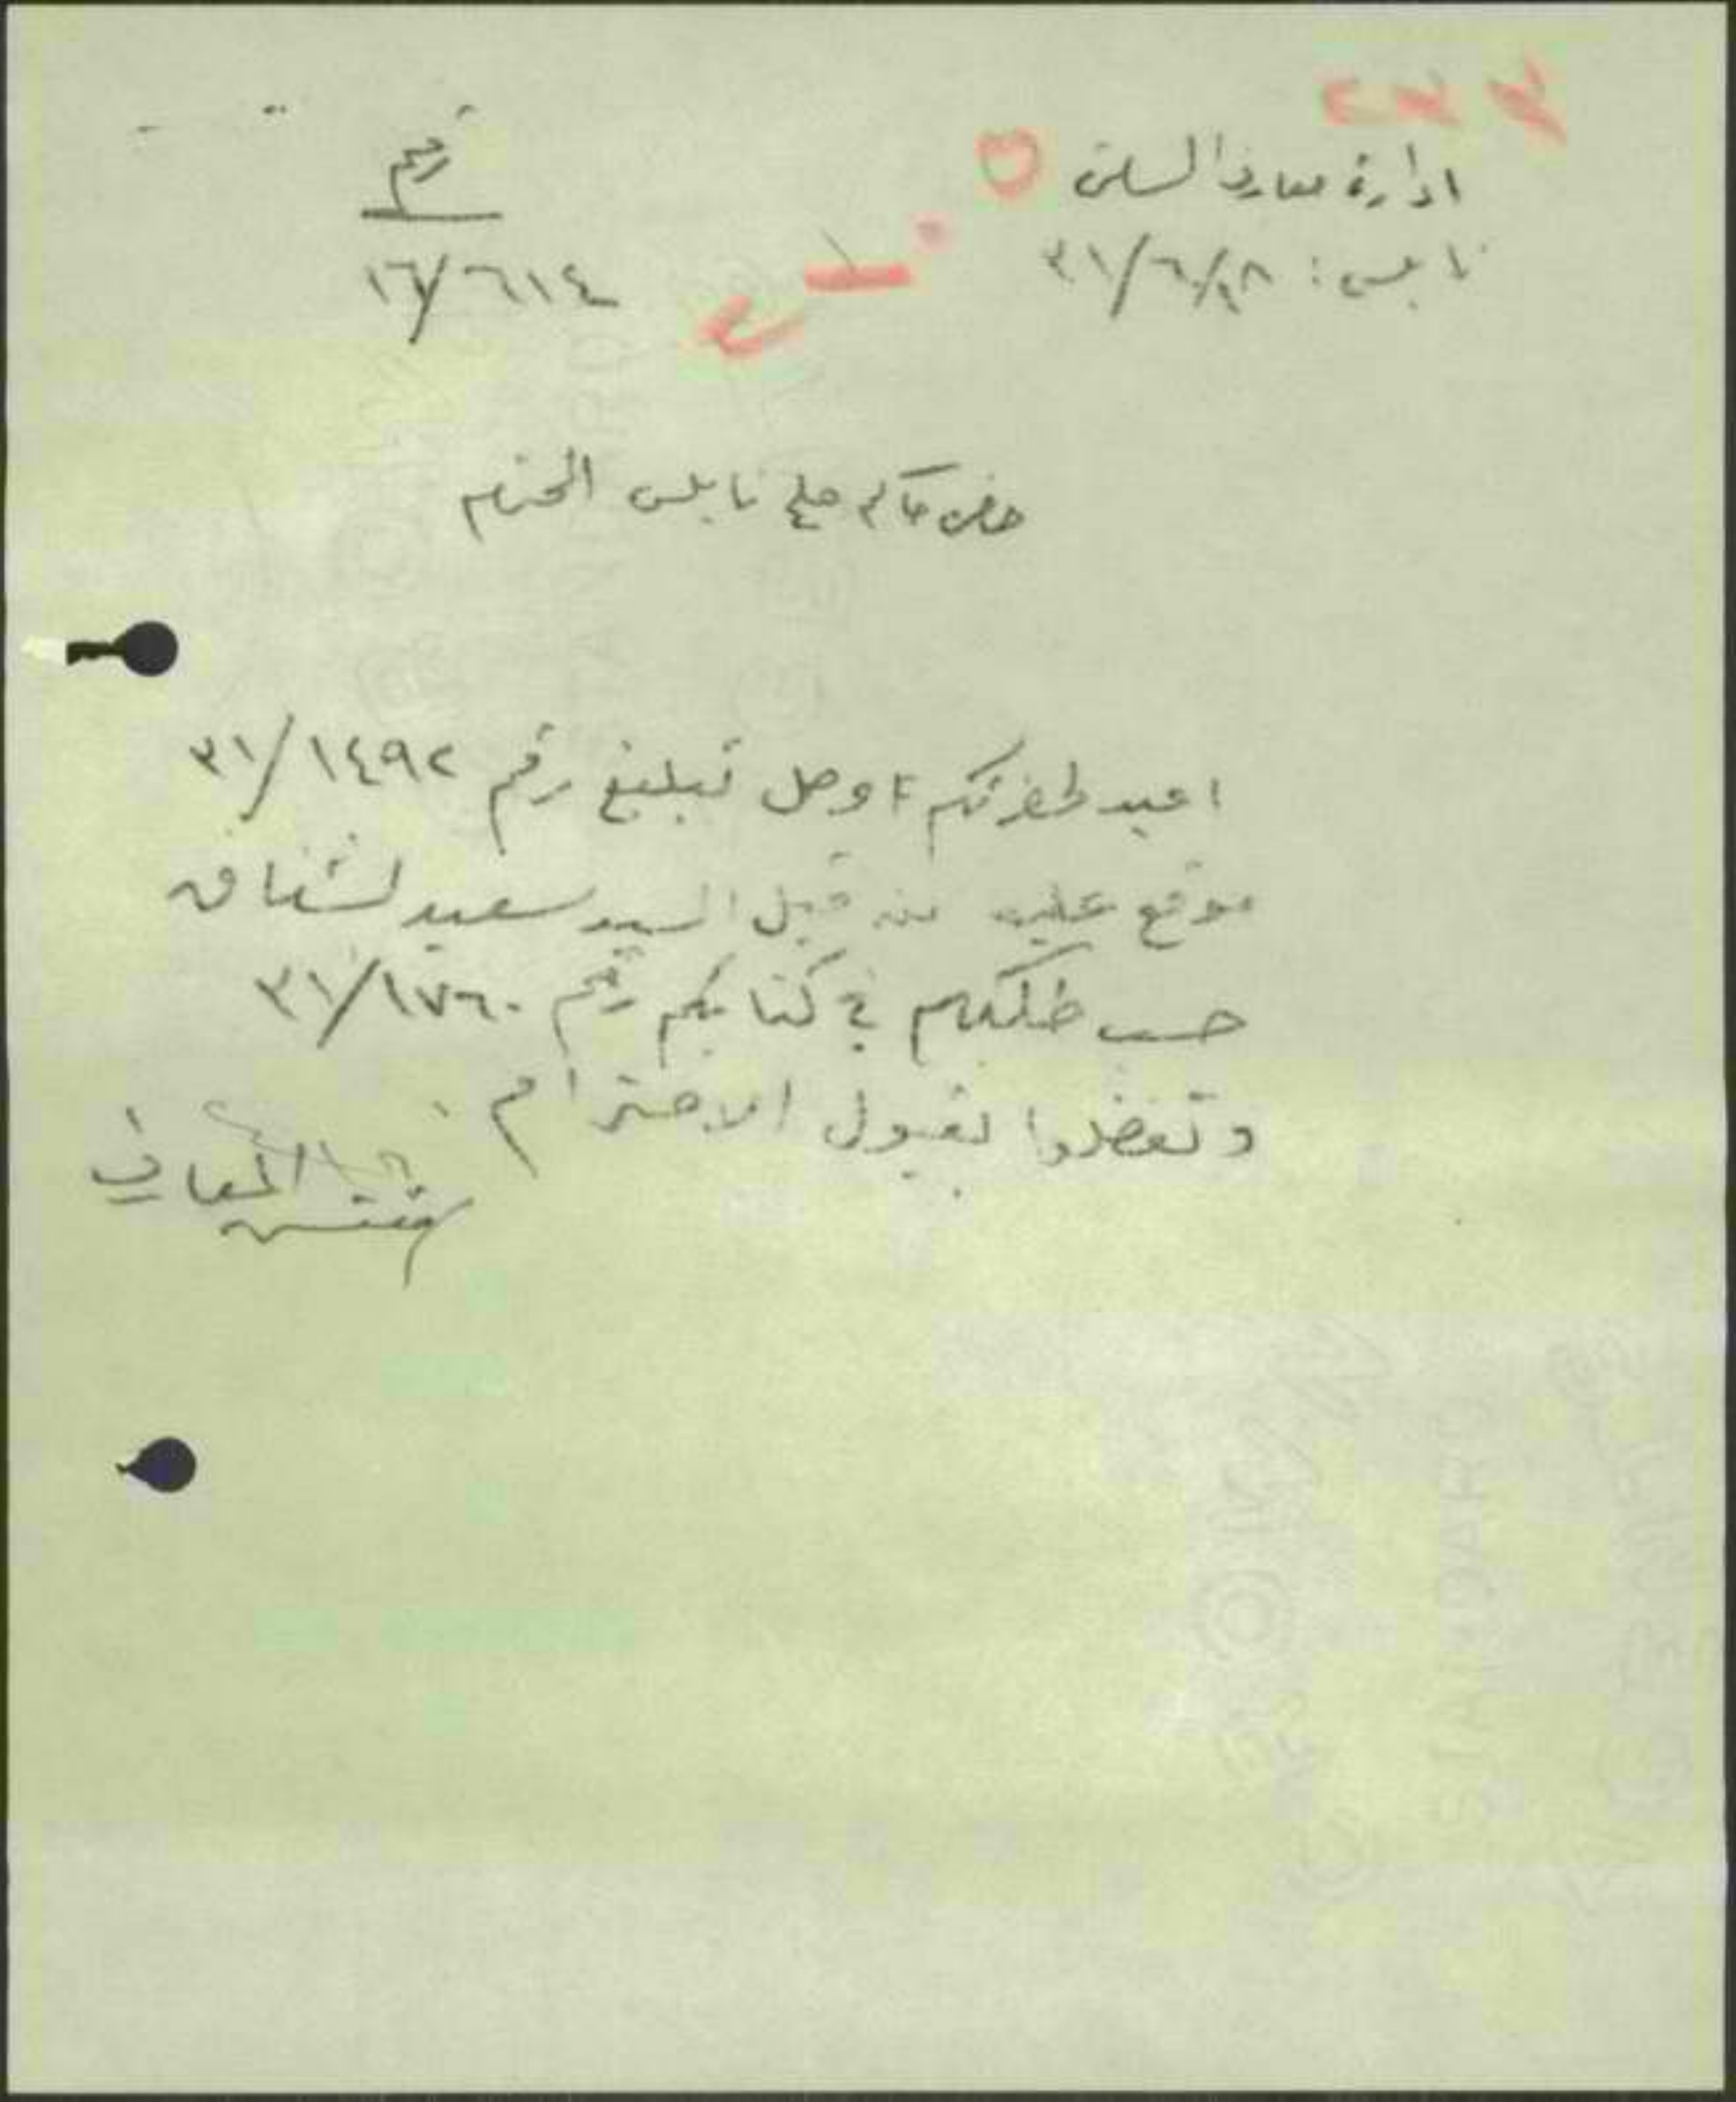 ادارة معارف السامرة
نابلس: ٣١/٦/١٨
رقم
١٦/٦١٤
حضرة حاكم صلح نابلس المحترم
اعيد لحضرتكم وصل تبليغ رقم ٣١/١٤٩٢
موقع عليه من قبل السيد سعيد
حسب طلبكم في كتابكم رقم ٣١/١٧٦٠
وتفضلوا بقبول الاحترام .
مفتش المعارف